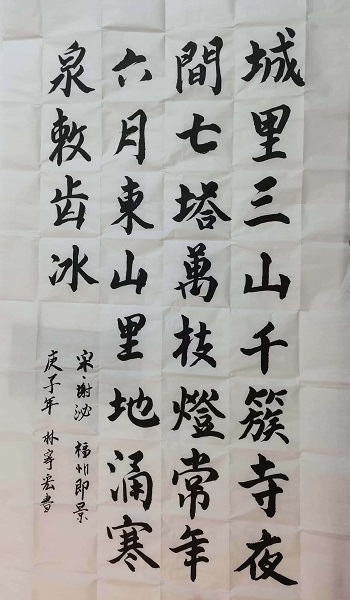 城里三山千簇寺夜
間七塔萬枝燈常年
六月東山里地涌寒
泉敕齿冰
宋謝泌 福州即景
庚子年 林宇宏書